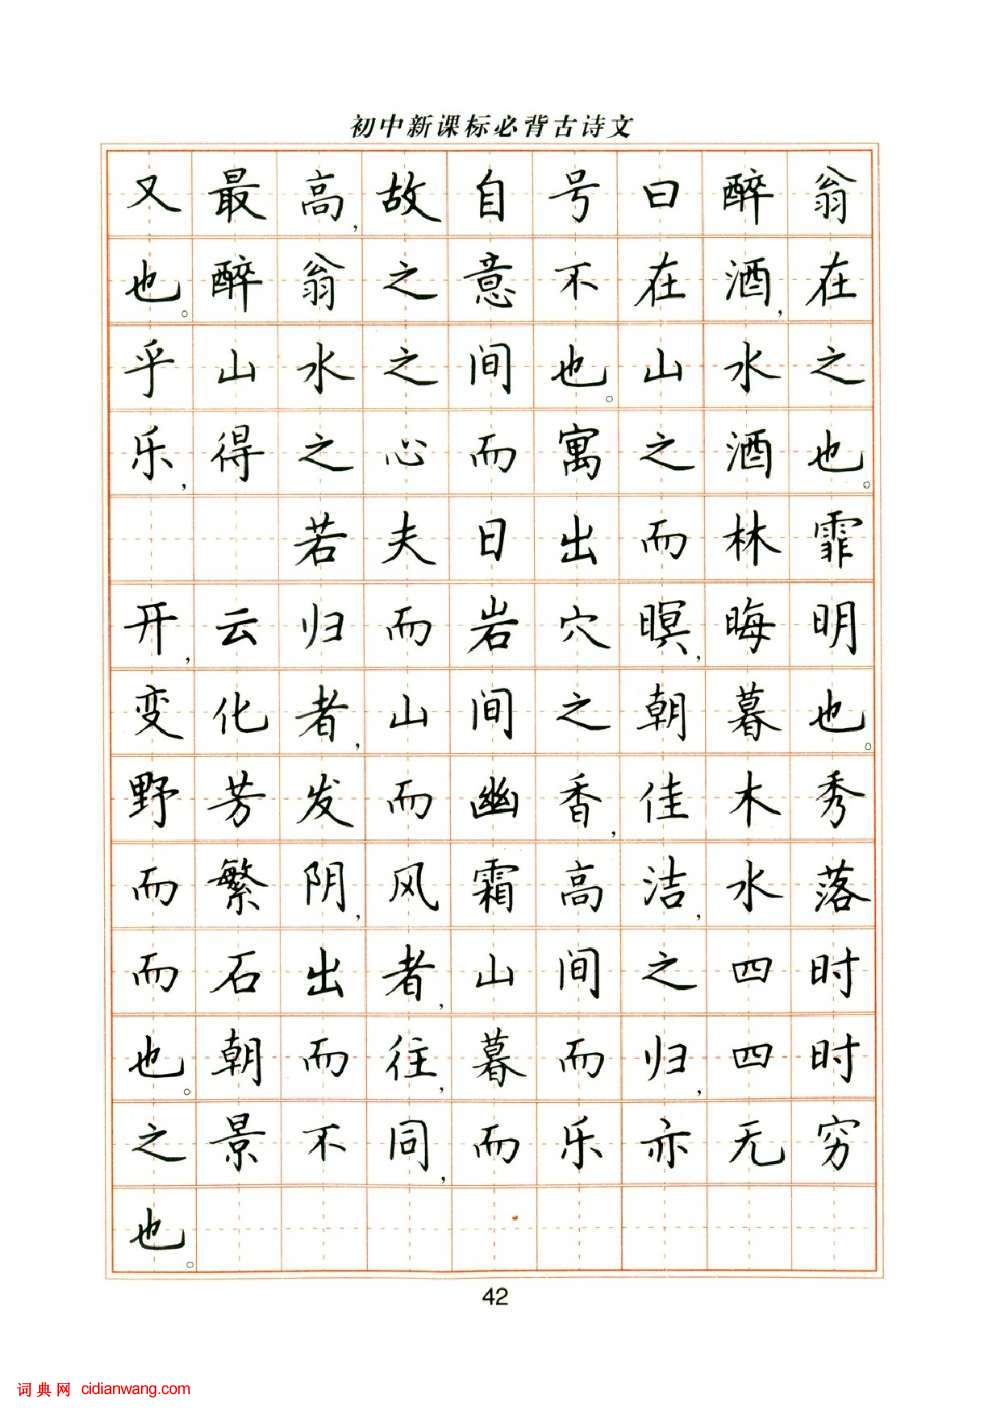 初中新课标必背古诗文
又最高,故自号曰醉翁
也。醉翁之意不在酒,在
乎山水之间也。山水之
乐,得之心而寓之酒也。
若夫日出而林霏
开,云归而岩穴暝,晦明
变化者,山间之朝暮也。
野芳发而幽香,佳木秀
而繁阴,风霜高洁,水落
而石出者,山间之四时
也。朝而往,暮而归,四时
之景不同,而乐亦无穷
也。
42
词典网 cidianwang.com